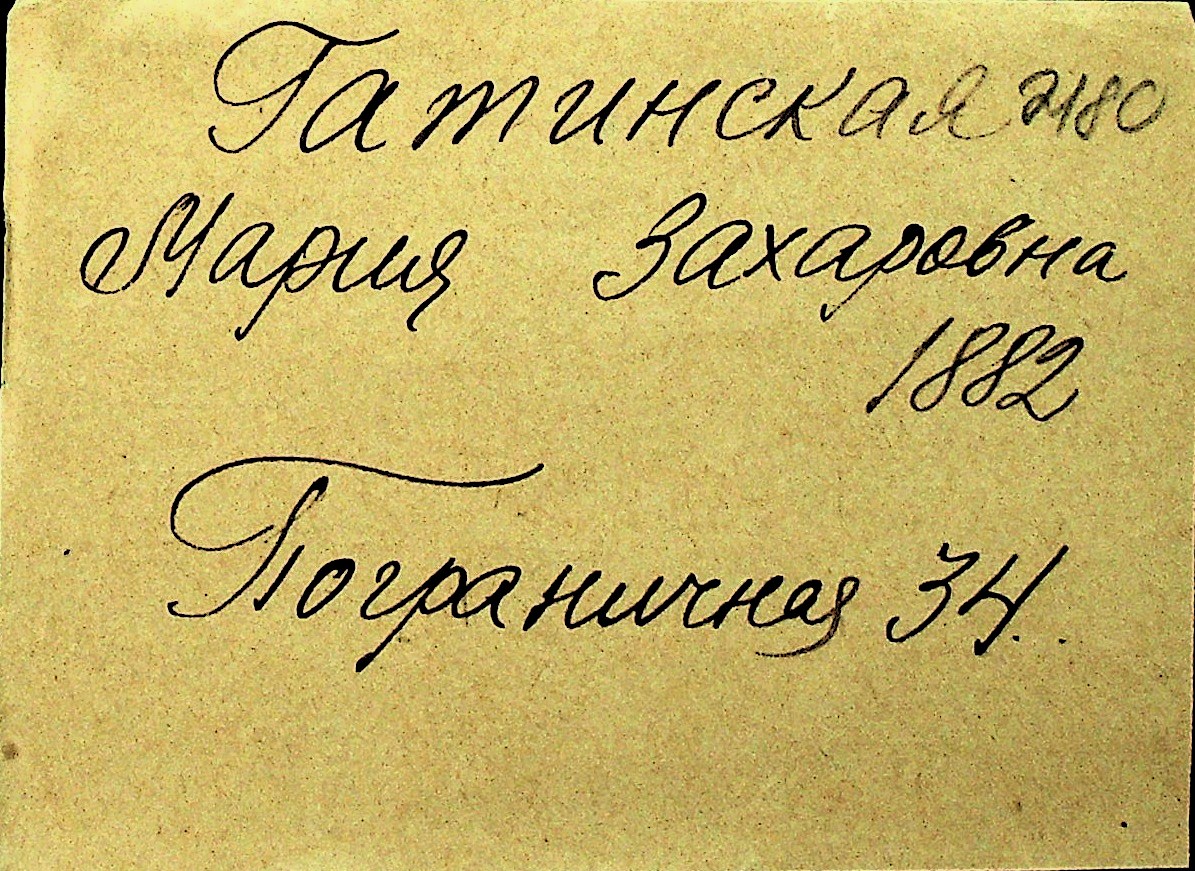 Гатинская 2180
Мария Захаровна
1882
Пограничная 34.